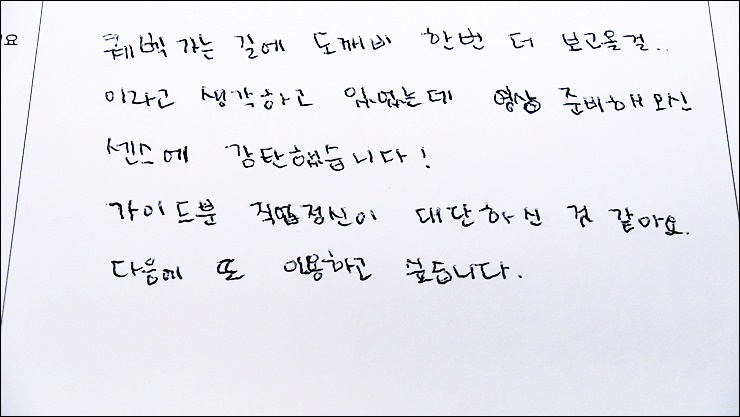 요
퀘벡 가는 길에 도깨비 한번 더 보고올걸..
이라고 생각하고 있었는데 영상 준비해오신
센스에 감탄했습니다!
가이드분 직업정신이 대단하신 것 같아요.
다음에 또 이용하고 싶습니다.